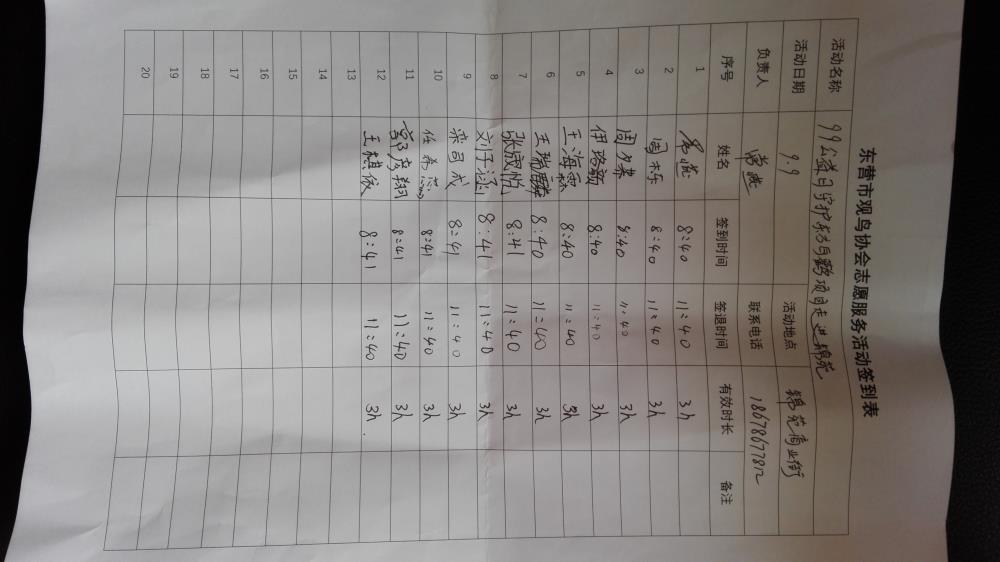 东营市观鸟协会志愿服务活动签到表
活动名称 99公益日守护东方白鹳项目走进锦苑
活动日期 9.9 活动地点 锦苑商业街
负责人 常燕 联系电话 18678677812
序号 姓名 签到时间 签退时间 有效时长 备注
1 8:40 11:40 3h
2 周林乐 8:40 11:40 3h
3 周夕某 8:40 11:40 3h
4 伊珞新 8:40 11:40 3h
5 王海霖 8:40 11:40 3h
6 王瑞麟 8:40 11:40 3h
7 张宬悦 8:41 11:40 3h
8 刘子涵 8:41 11:40 3h
9 栾司成 8:41 11:40 3h
10 任希蕊 8:41 11:40 3h
11 郭彦翔 8:41 11:40 3h
12 王棋依 8:41 11:40 3h.
13
14
15
16
17
18
19
20